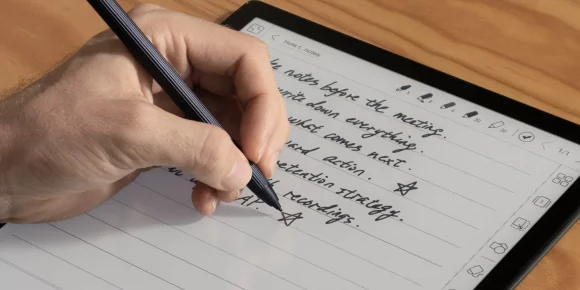 notes before the meeting.
write down everything.
what comes next.
action. ☆
retention strategy.
recordings.
☆